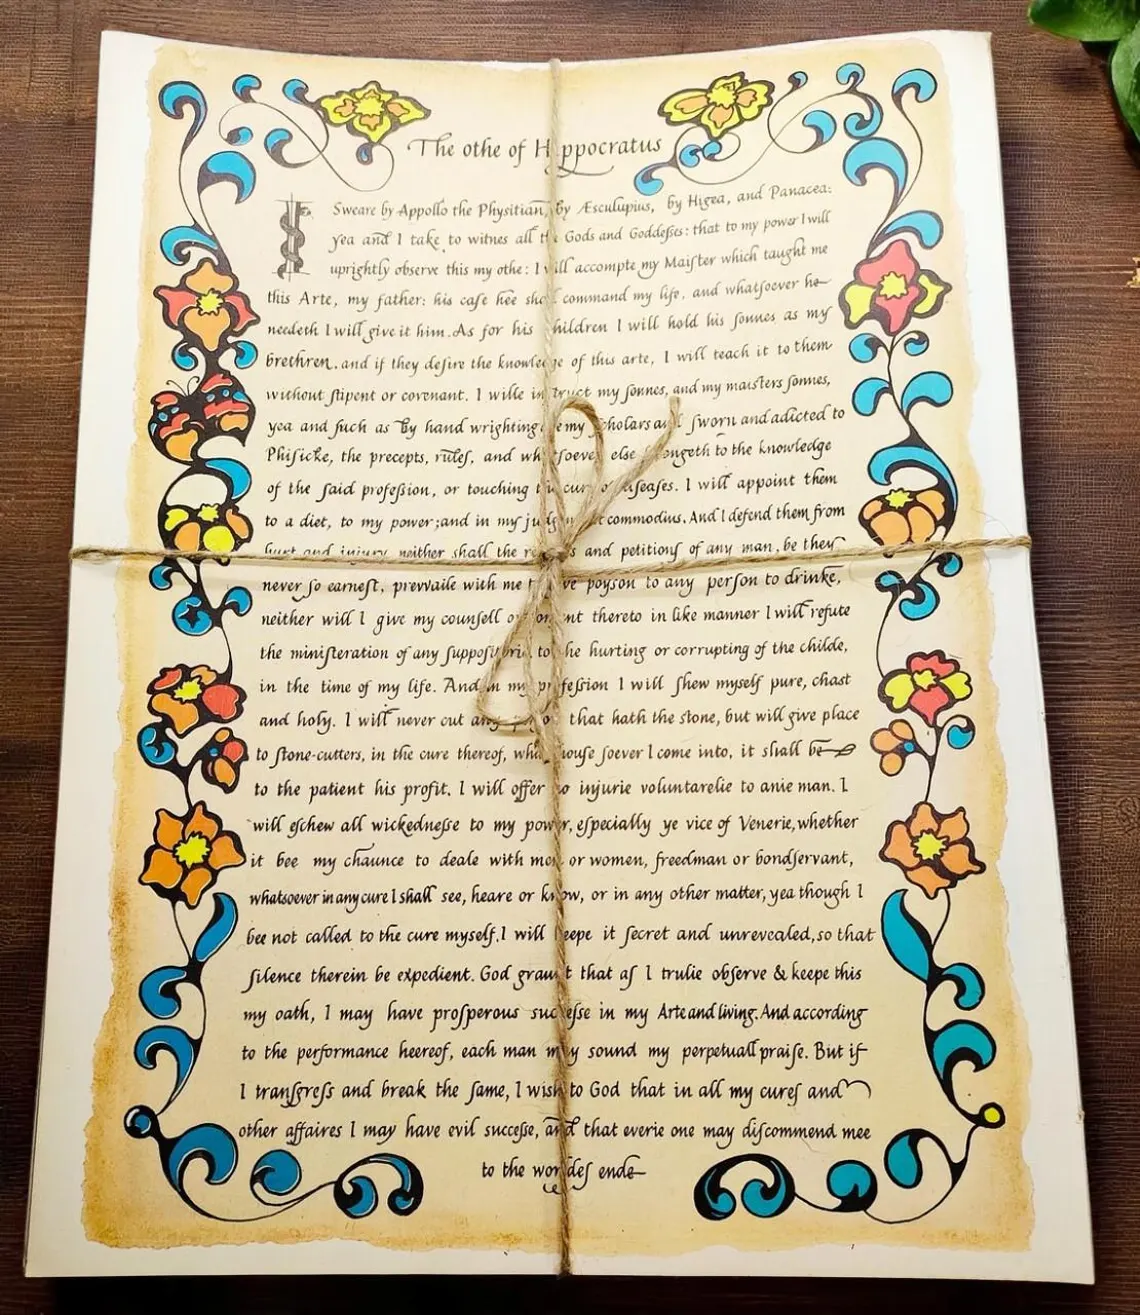 The othe of Hippocratus
I Sweare by Appollo the Physitian, by Æsculupius, by Higea, and Panacea:
yea and I take to witnes all the Gods and Goddeſſes: that to my power I will
uprightly observe this my othe: I will accompte my Maiſter which taught me
this Arte, my father: his caſe hee shal command my life, and whatſoever he
needeth I will give it him. As for his children I will hold his ſonnes as my
brethren, and if they deſire the knowledge of this arte, I will teach it to them
without ſtipent or covenant. I wille inſtruct my ſonnes, and my maisters ſonnes,
yea and ſuch as by hand wrighting be my ſcholars and ſworn and adicted to
Phiſicke, the precepts, rules, and whatſoever else belongeth to the knowledge
of the ſaid profeſsion, or touching the cure of diſeaſes. I will appoint them
to a diet, to my power; and in my judgment commodius. And I defend them from
hurt and injury, neither shall the and petitionſ of any man, be they
never ſo earneſt, prevvaile with me to give poyson to any perſon to drinke,
neither will I give my counſell or conſent thereto in like manner I will refute
the miniſteration of any ſuppoſitorie to the hurting or corrupting of the childe,
in the time of my life. And in my profeſsion I will ſhew myself pure, chast
and holy. I will never cut any that hath the stone, but will give place
to ſtone-cutters, in the cure thereof, what house ſoever I come into, it shall be
to the patient his profit. I will offer no injurie voluntarelie to anie man. I
will eſchew all wickedneſse to my power, eſpecially ye vice of Venerie, whether
it bee my chaunce to deale with men or women, freedman or bondſervant,
whatsoever in any cure I shall see, heare or know, or in any other matter, yea though I
bee not called to the cure myself. I will keepe it ſecret and unrevealed, so that
ſilence therein be expedient. God graunt that aſ I trulie obſerve & keepe this
my oath, I may have proſperous succeſse in my Arte and living. And according
to the performance heereof, each man may sound my perpetuall praiſe. But if
I tranſgreſs and break the ſame, I wish to God that in all my cureſ and
other affaires I may have evil succeſse, and that everie one may diſcommend mee
to the worldeſ ende